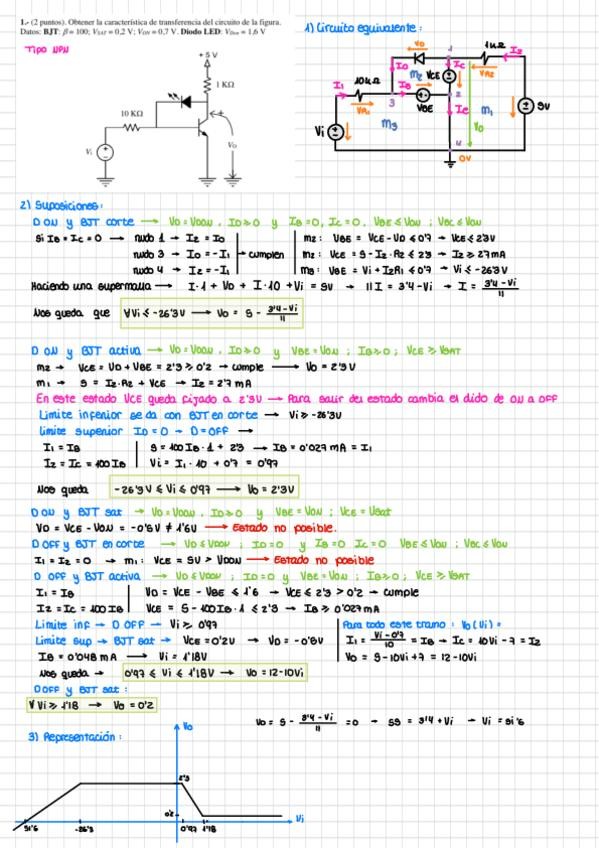 1.- (2 puntos). Obtener la característica de transferencia del circuito de la figura.
Datos: BJT: β = 100; VSAT = 0,2 V; VON = 0,7 V. Diodo LED: VDon = 1,6 V
Tipo NPN
+ 5 V
1 KΩ
10 KΩ
Vi
Vo
1) Circuito equivalente:
VD
1
1kΩ
I2
ID
Ic
M2
VCE
VR2
I1
10kΩ
IB
2
3
VBE
VR1
IE
M1
5V
Vi
M3
VO
4
0V
2) Suposiciones:
D ON y BJT corte → VD = VDON, ID ≥ 0 y IB = 0, Ic = 0, VBE ≤ VON ; VBC ≤ VON
Si IB = Ic = 0 → nudo 1 → I2 = ID
nudo 3 → ID = -I1
nudo 4 → I2 = -I1
cumplen
M2: VBE = VCE - VD ≤ 0'7 → VCE ≤ 2'3V
M2: VCE = 5 - I2·R2 ≤ 2'3 → I2 ≥ 2'7mA
M3: VBE = Vi + I2R1 ≤ 0'7 → Vi ≤ -26'3V
Haciendo una supermalla → I·1 + VD + I·10 + Vi = 5V → 11I = 3'4 - Vi → I = 3'4 - Vi / 11
Nos queda que ∀Vi ≤ -26'3V → VO = 5 - 3'4 - Vi / 11
D ON y BJT activa → VD = VDON, ID ≥ 0 y VBE = VON ; IB ≥ 0 ; VCE ≥ VSAT
M2 → VCE = VD + VBE = 2'3 ≥ 0'2 → cumple → VO = 2'3V
M1 → 5 = I2·R2 + VCE → I2 = 2'7 mA
En este estado VCE queda fijado a 2'3V → Para salir del estado cambia el diodo de ON a OFF
Limite inferior se da con BJT en corte → Vi ≥ -26'3V
Limite superior ID = 0 → D = OFF →
I1 = IB
I2 = Ic = 100 IB
5 = 100 IB · 1 + 2'3 → IB = 0'027 mA = I1
Vi = I1 · 10 + 0'7 = 0'97
Nos queda -26'3V ≤ Vi ≤ 0'97 → VO = 2'3V
D ON y BJT sat → VD = VDON, ID ≥ 0 y VBE = VON ; VCE = VSAT
VD = VCE - VON = -0'5V ≠ 1'6V → Estado no posible.
D OFF y BJT en corte → VD ≤ VDON ; ID = 0 y IB = 0 Ic = 0 VBE ≤ VON ; VBC ≤ VON
I1 = I2 = 0 → M1: VCE = 5V > VDON → Estado no posible
D OFF y BJT activa → VD ≤ VDON ; ID = 0 y VBE = VON ; IB ≥ 0 ; VCE ≥ VSAT
I1 = IB
I2 = Ic = 100 IB
VD = VCE - VBE ≤ 1'6 → VCE ≤ 2'3V > 0'2 → cumple
VCE = 5 - 100 IB · 1 ≤ 2'3 → IB ≥ 0'027mA
Limite inf → D OFF → Vi ≥ 0'97
Limite sup → BJT sat → VCE = 0'2V → VD = -0'5V
IB = 0'048 mA → Vi = 1'18V
Para todo este tramo: VO(Vi) =
I1 = Vi - 0'7 / 10 = IB → Ic = 10Vi - 7 = I2
VO = 5 - 10Vi + 7 = 12 - 10Vi
Nos queda → 0'97 ≤ Vi ≤ 1'18V → VO = 12 - 10Vi
D OFF y BJT sat:
∀ Vi ≥ 1'18 → VO = 0'2
VO = 5 - 3'4 - Vi / 11 = 0 → 55 = 3'4 + Vi → Vi = 51'6
3) Representación:
VO
2'3
0'2
Vi
51'6
-26'3
0'97
1'18